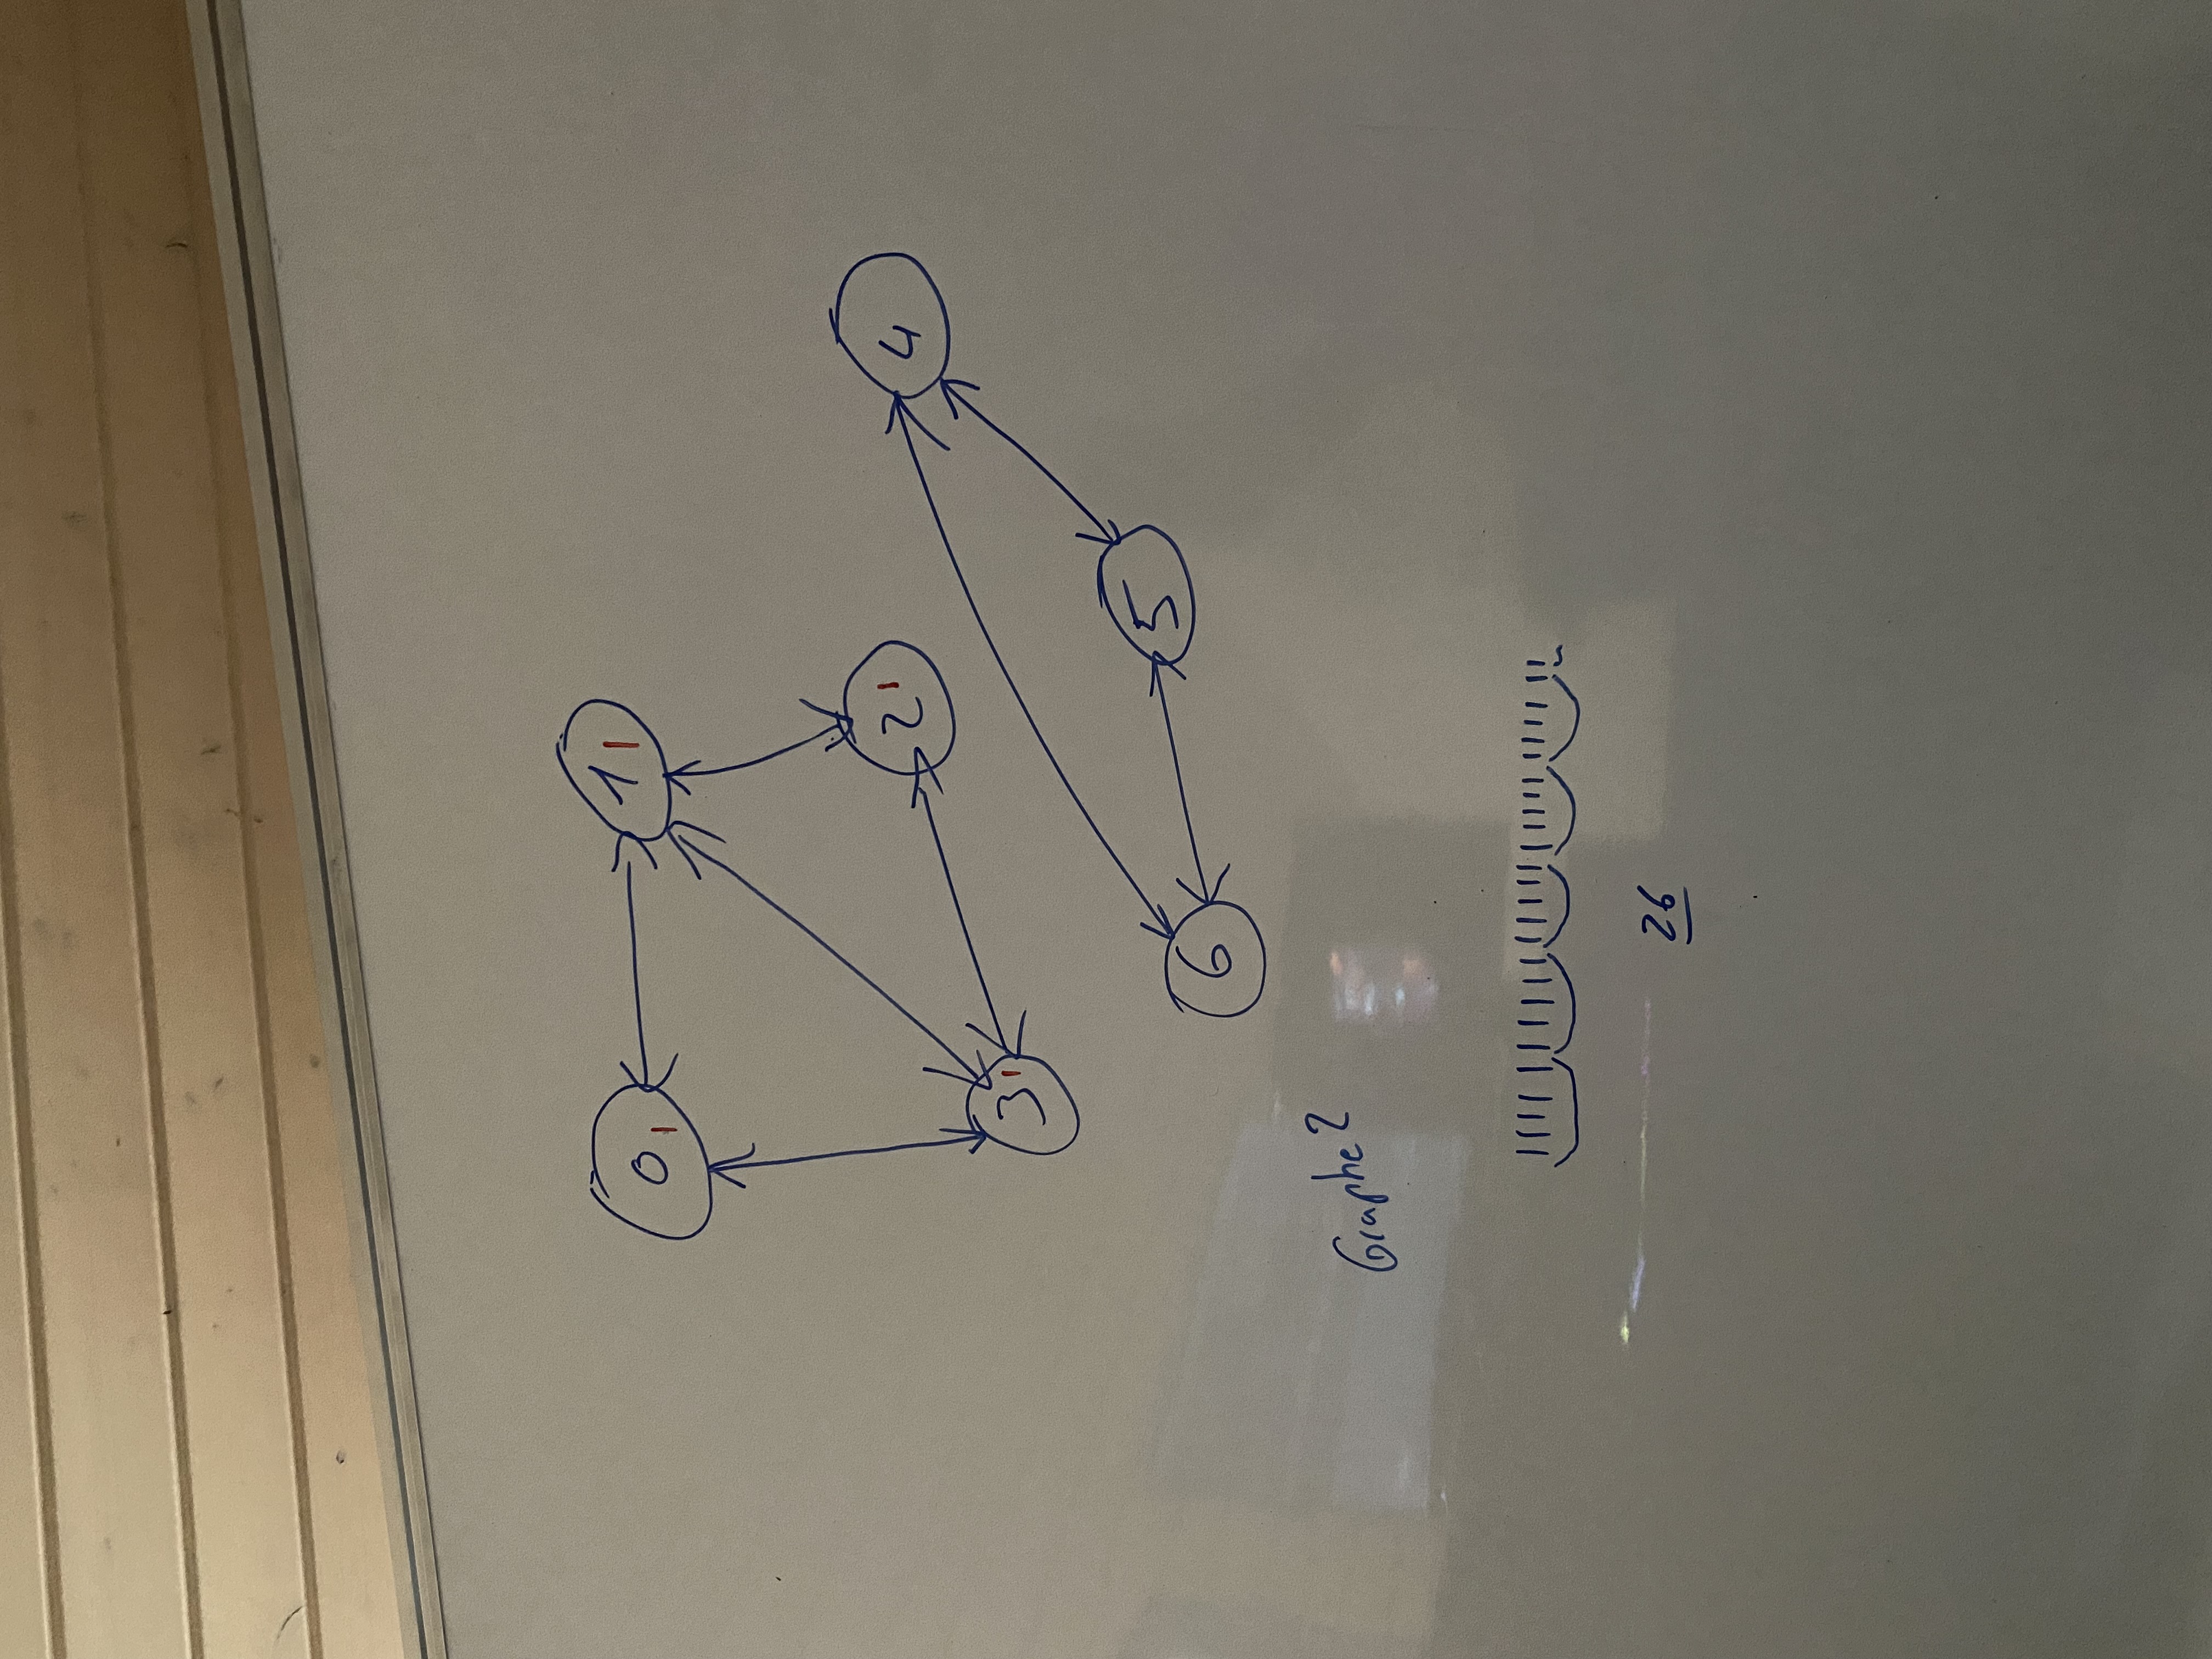 0 1
1 1
2 1
4
3 1
5
6
Graphe 2
26